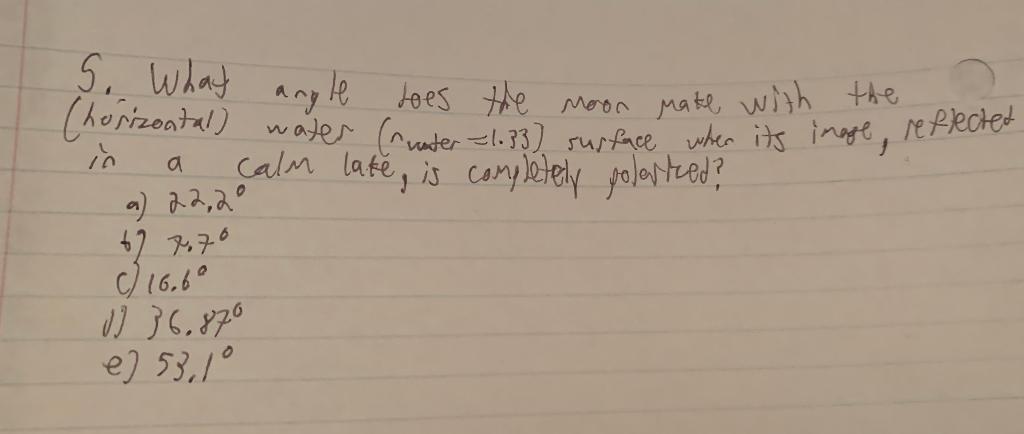 5. What angle does the Moon make with the
(horizontal) water (n water = 1.33) surface when its image, reflected
in a calm lake, is completely polarized?
a) 22.2°
b) 7.7°
c) 16.6°
d) 36.87°
e) 53.1°